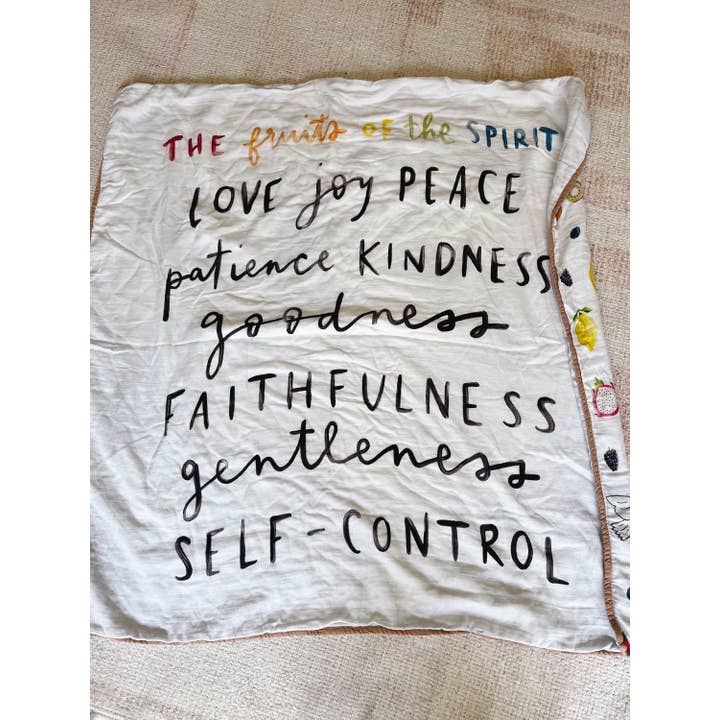 THE fruits OF the SPIRIT
LOVE joy PEACE
patience KINDNESS
goodness
FAITHFULNESS
gentleness
SELF-CONTROL